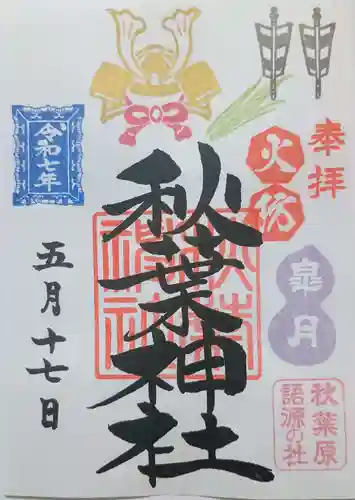 奉拝
火防
皐月
秋葉原
語源の社
秋葉神社
秋葉神社
令和七年
五月十七日